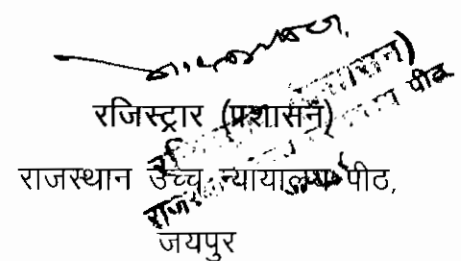 रजिस्ट्रार (प्रशासन)
राजस्थान उच्च न्यायालय पीठ,
जयपुर